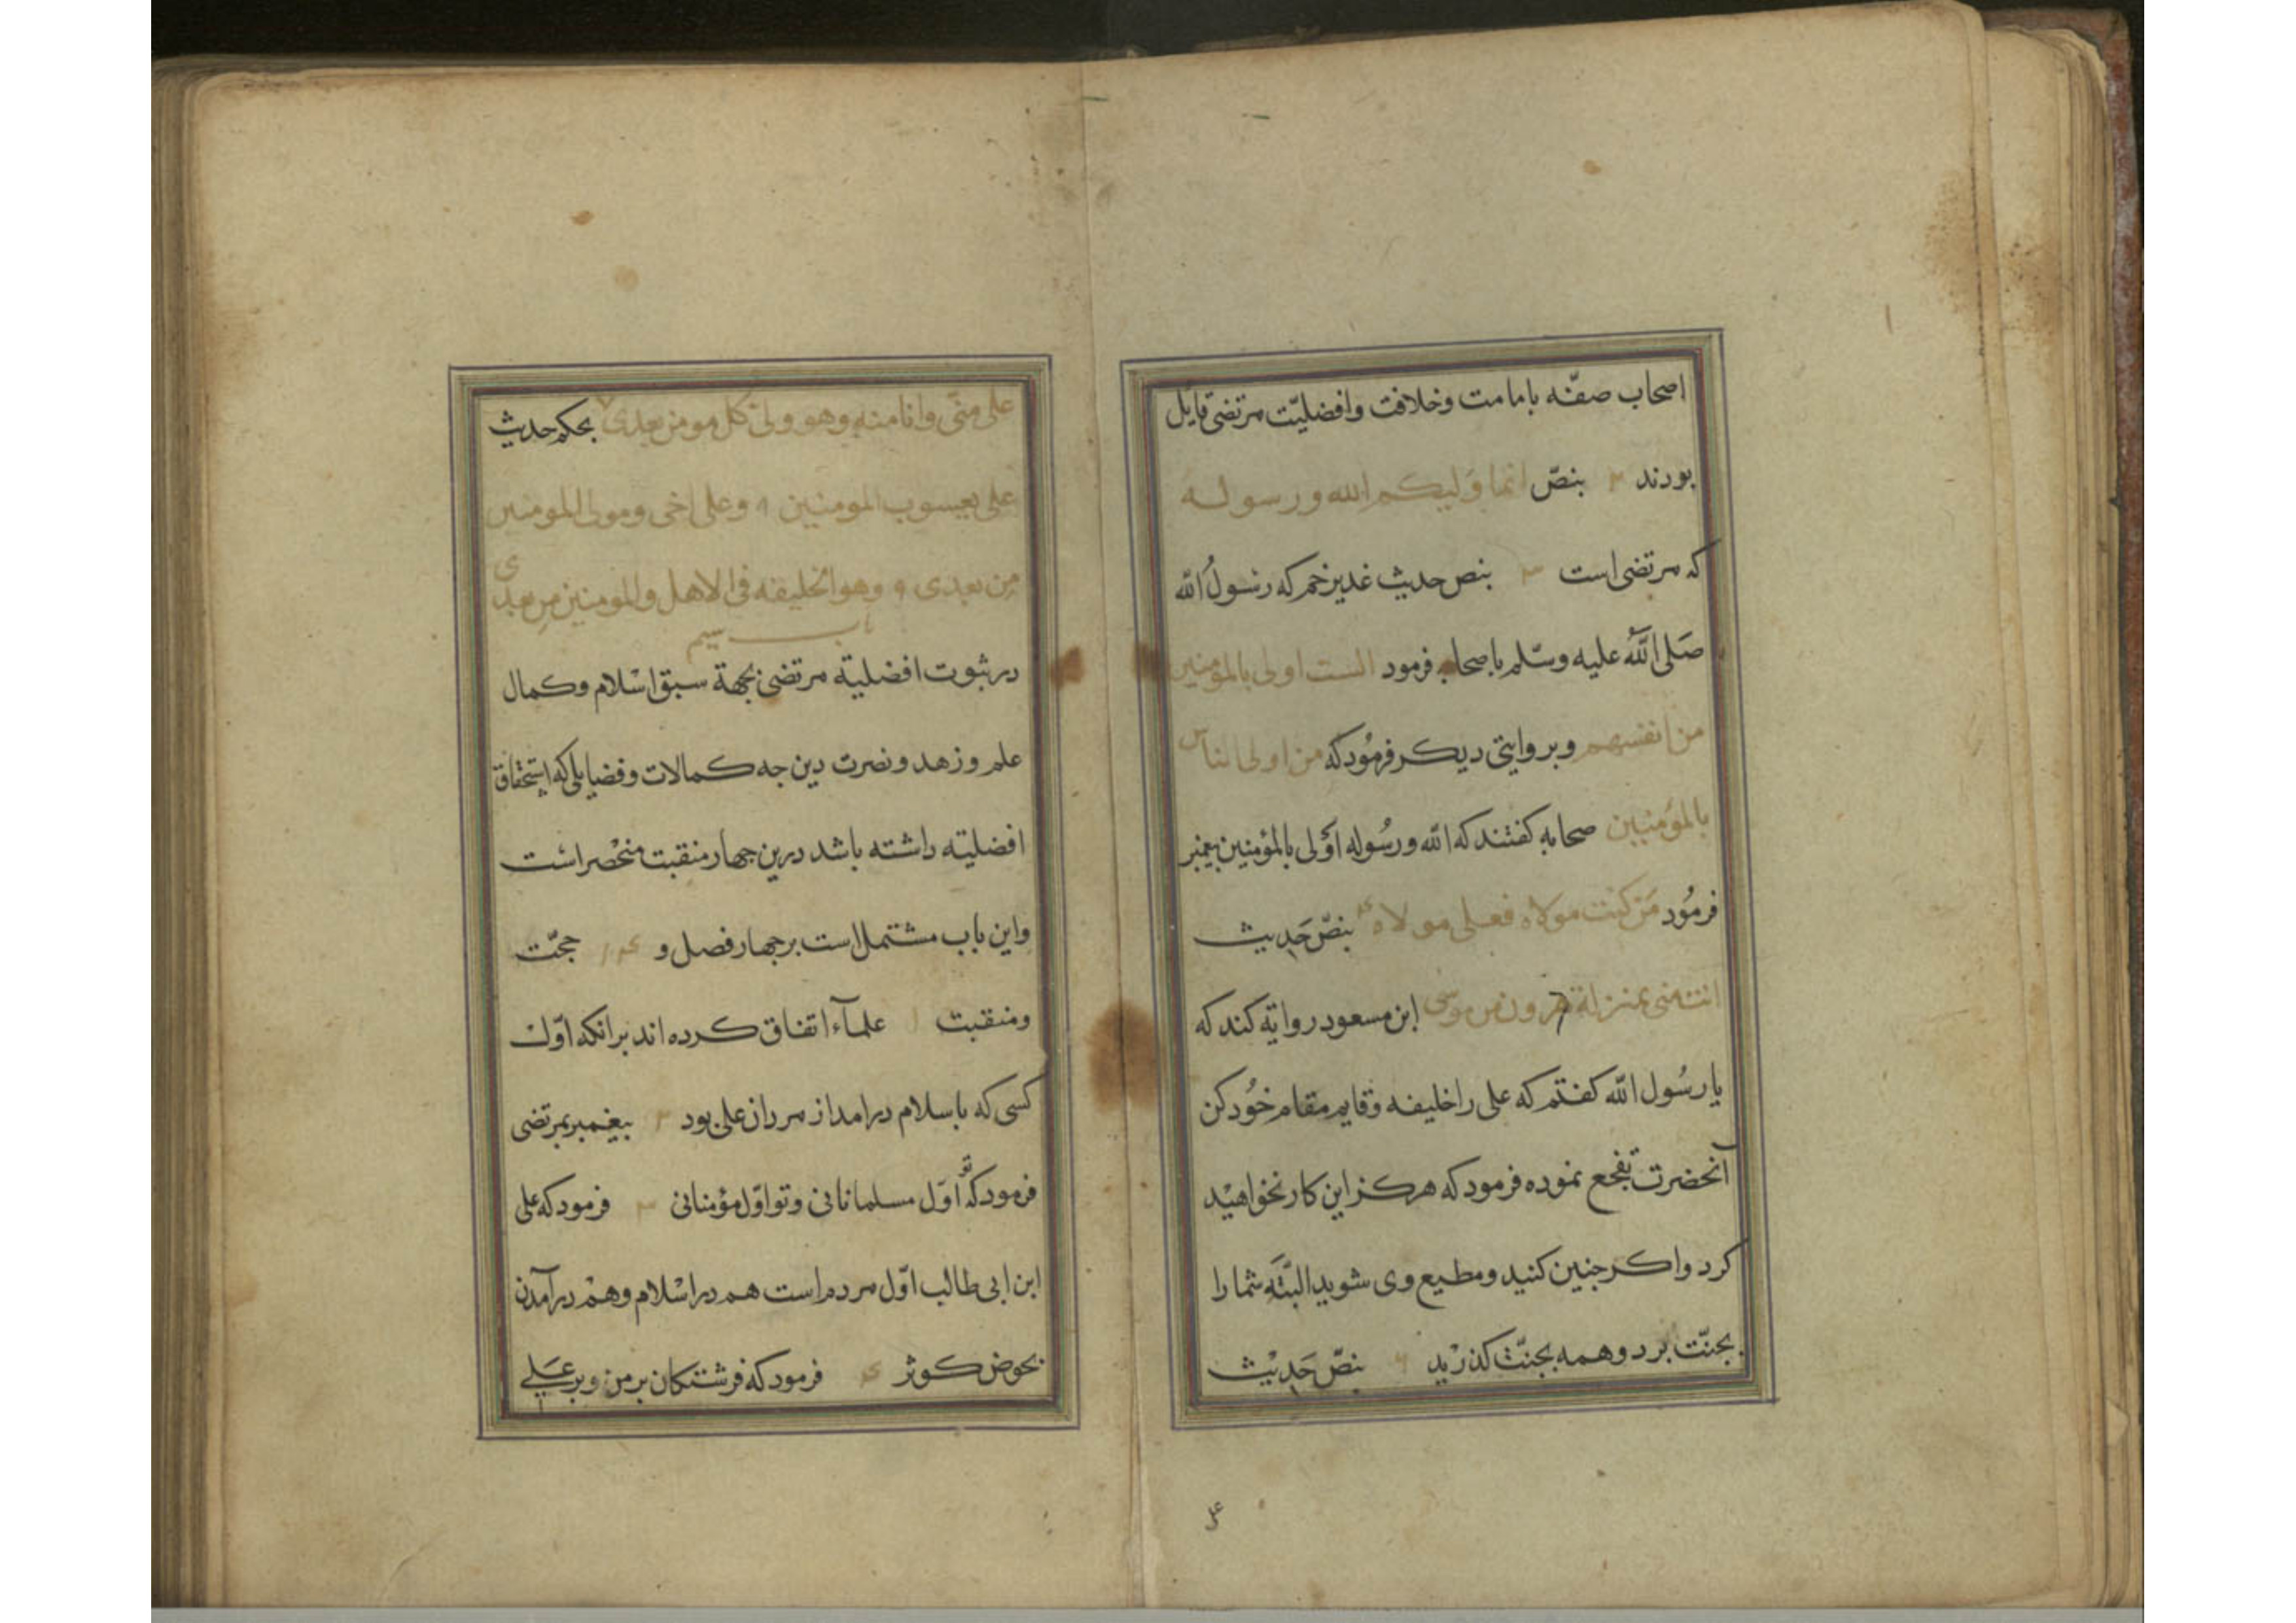 اصحاب صفّه بامامت وخلافت وافضليّت مرتضى قايل
بودند ٢ بنصّ انما وليكم الله ورسوله
كه مرتضى است ٣ بنص حديث غدير خم كه رسولُ الله
صَلى اللّٰه عليه وسّلم باصحاب فرمود الست اولى بالمؤمنين
من انفسهم وبروايتى ديكر فرمُودكه من اولى الناس
بالمؤمنين صحابه كفتند كه الله ورسُوله اَوْلى بالمؤمنين پيغمبر
فرمُود مَن كنت مولاه فعلى مولاه ۴ بنصّ حَديث
انت منى بمنزلة هرون من موسى ابن مسعود رواية كند كه
يا رسُول الله كفتم كه على را خليفه وقايم مقام خُود كن
آنحضرت تفجع نموده فرمود كه هركز اين كار نخواهيْد
كرد واكر جنين كنيد ومطيع وى شويد البتّه شما را
بجنّت برد وهمه بجنّت كذريد ۶ بنصّ حَديْث
۴
على منّى وانا منه وهو ولى كل مومن بعدى ٧ بحكم حديث
على يعسوب المومنين ٩ وعلى اخى ومولى المومنين
من بعدى ٩ وهو الخليفه فى الاهل والمومنين من بعدى
باب سيم
در ثبوت افضلية مرتضى بجهة سبق اسْلام وكمال
علم وزهد ونصرت دين جه كمالات وفضايلى كه استحقاق
افضليته داشته باشد درين جهار منقبت منحْصر است
واين باب مشتمل است برجهار فصل و حجّت
ومنقبت ١ علمآء اتفاق كرده اند برانكه اوّل
كسى كه باسلام درامد از مردان على بود ٢ پيغمبر بمرتضى
فرمود كه تو اوّل مسلمانانى وتو اوّل مؤمنانى ٣ فرمود كه على
ابن ابى طالب اوّل مردم است هم در اسْلام وهمْ در آمدن
بحوض كوثر ۴ فرمود كه فرشتكان بر من وبر عَلى